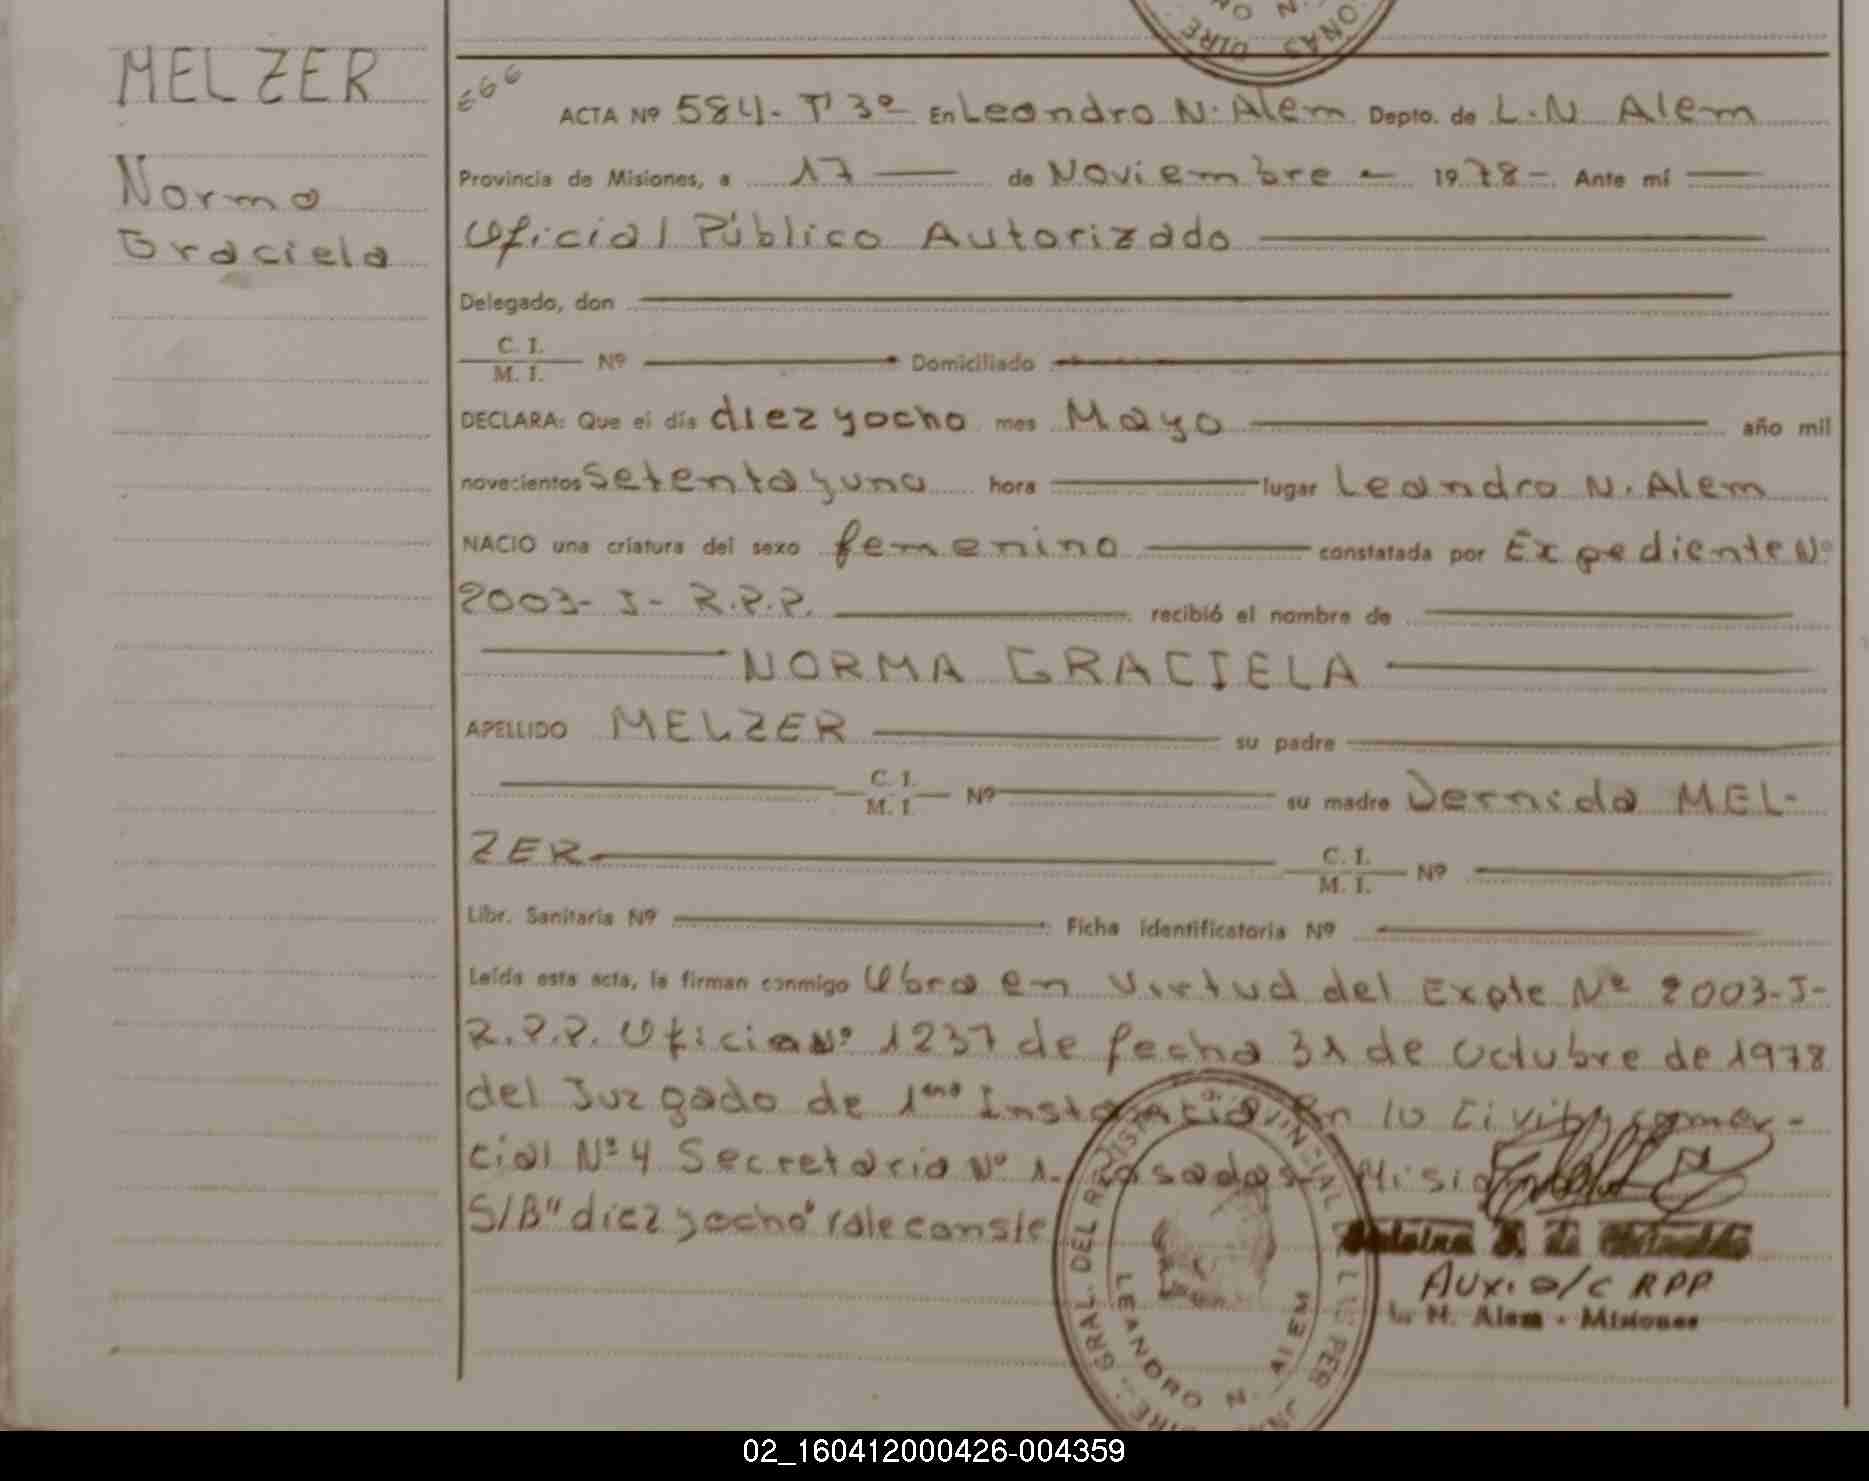 MELZER
Norma
Graciela
ACTA Nº 584- Tº 3º En Leandro N. Alem Depto. de L.N Alem
Provincia de Misiones, a 17 de Noviembre 1978- Ante mí
Oficial Público Autorizado
Delegado, don
C. I.
M. I. Nº Domiciliado
DECLARA: Que el día diez y ocho mes Mayo año mil
novecientos setenta y uno hora lugar Leandro N. Alem
NACIO una criatura del sexo femenino constatada por Expediente Nº
2003- J- R.P.P. recibió el nombre de
NORMA GRACIELA
APELLIDO MELZER su padre
C. I.
M. I. Nº su madre Dernida MEL-
ZER C. I.
M. I. Nº
Libr. Sanitaria Nº Ficha identificatoria Nº
Leída esta acta, la firman conmigo Obra en virtud del Expte Nº 2003-J-
R.P.P. Oficio Nº 1237 de fecha 31 de Octubre de 1978
del Juzgado de 1era Instancia en lo Civil y Comer-
cial Nº 4 Secretaria Nº 1. Posadas Misiones
S/B "diez y ocho" vale conste
DIRE. GRAL. DEL REGIST PROVINCIAL PER
LEANDRO N. ALEM
Aux. a/c RPP
L. N. Alem - Misiones
02_160412000426-004359